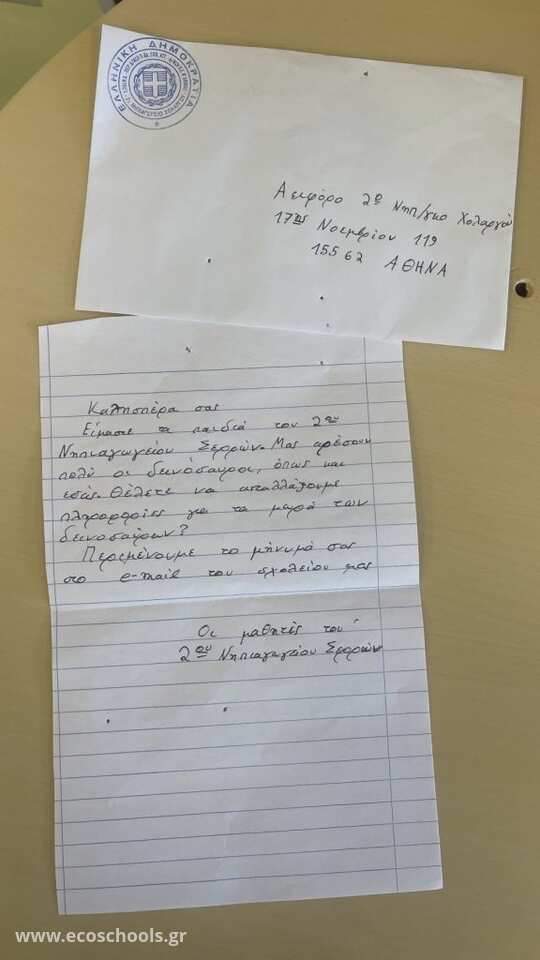 ΕΛΛΗΝΙΚΗ ΔΗΜΟΚΡΑΤΙΑ
Αειφόρο 2ο Νηπ/γείο Χολαργού
17ης Νοεμβρίου 119
15562 ΑΘΗΝΑ
Καλησπέρα σας
Είμαστε τα παιδιά του 2ου
Νηπιαγωγείου Σερρών. Μας αρέσουν
πολύ οι δεινόσαυροι, όπως και
εσάς. Θέλετε να ανταλλάξουμε
πληροφορίες για τα μωρά των
δεινοσαύρων?
Περιμένουμε το μήνυμά σας
στο e-mail του σχολείου μας
Οι μαθητές του
2ου Νηπιαγωγείου Σερρών
www.ecoschools.gr